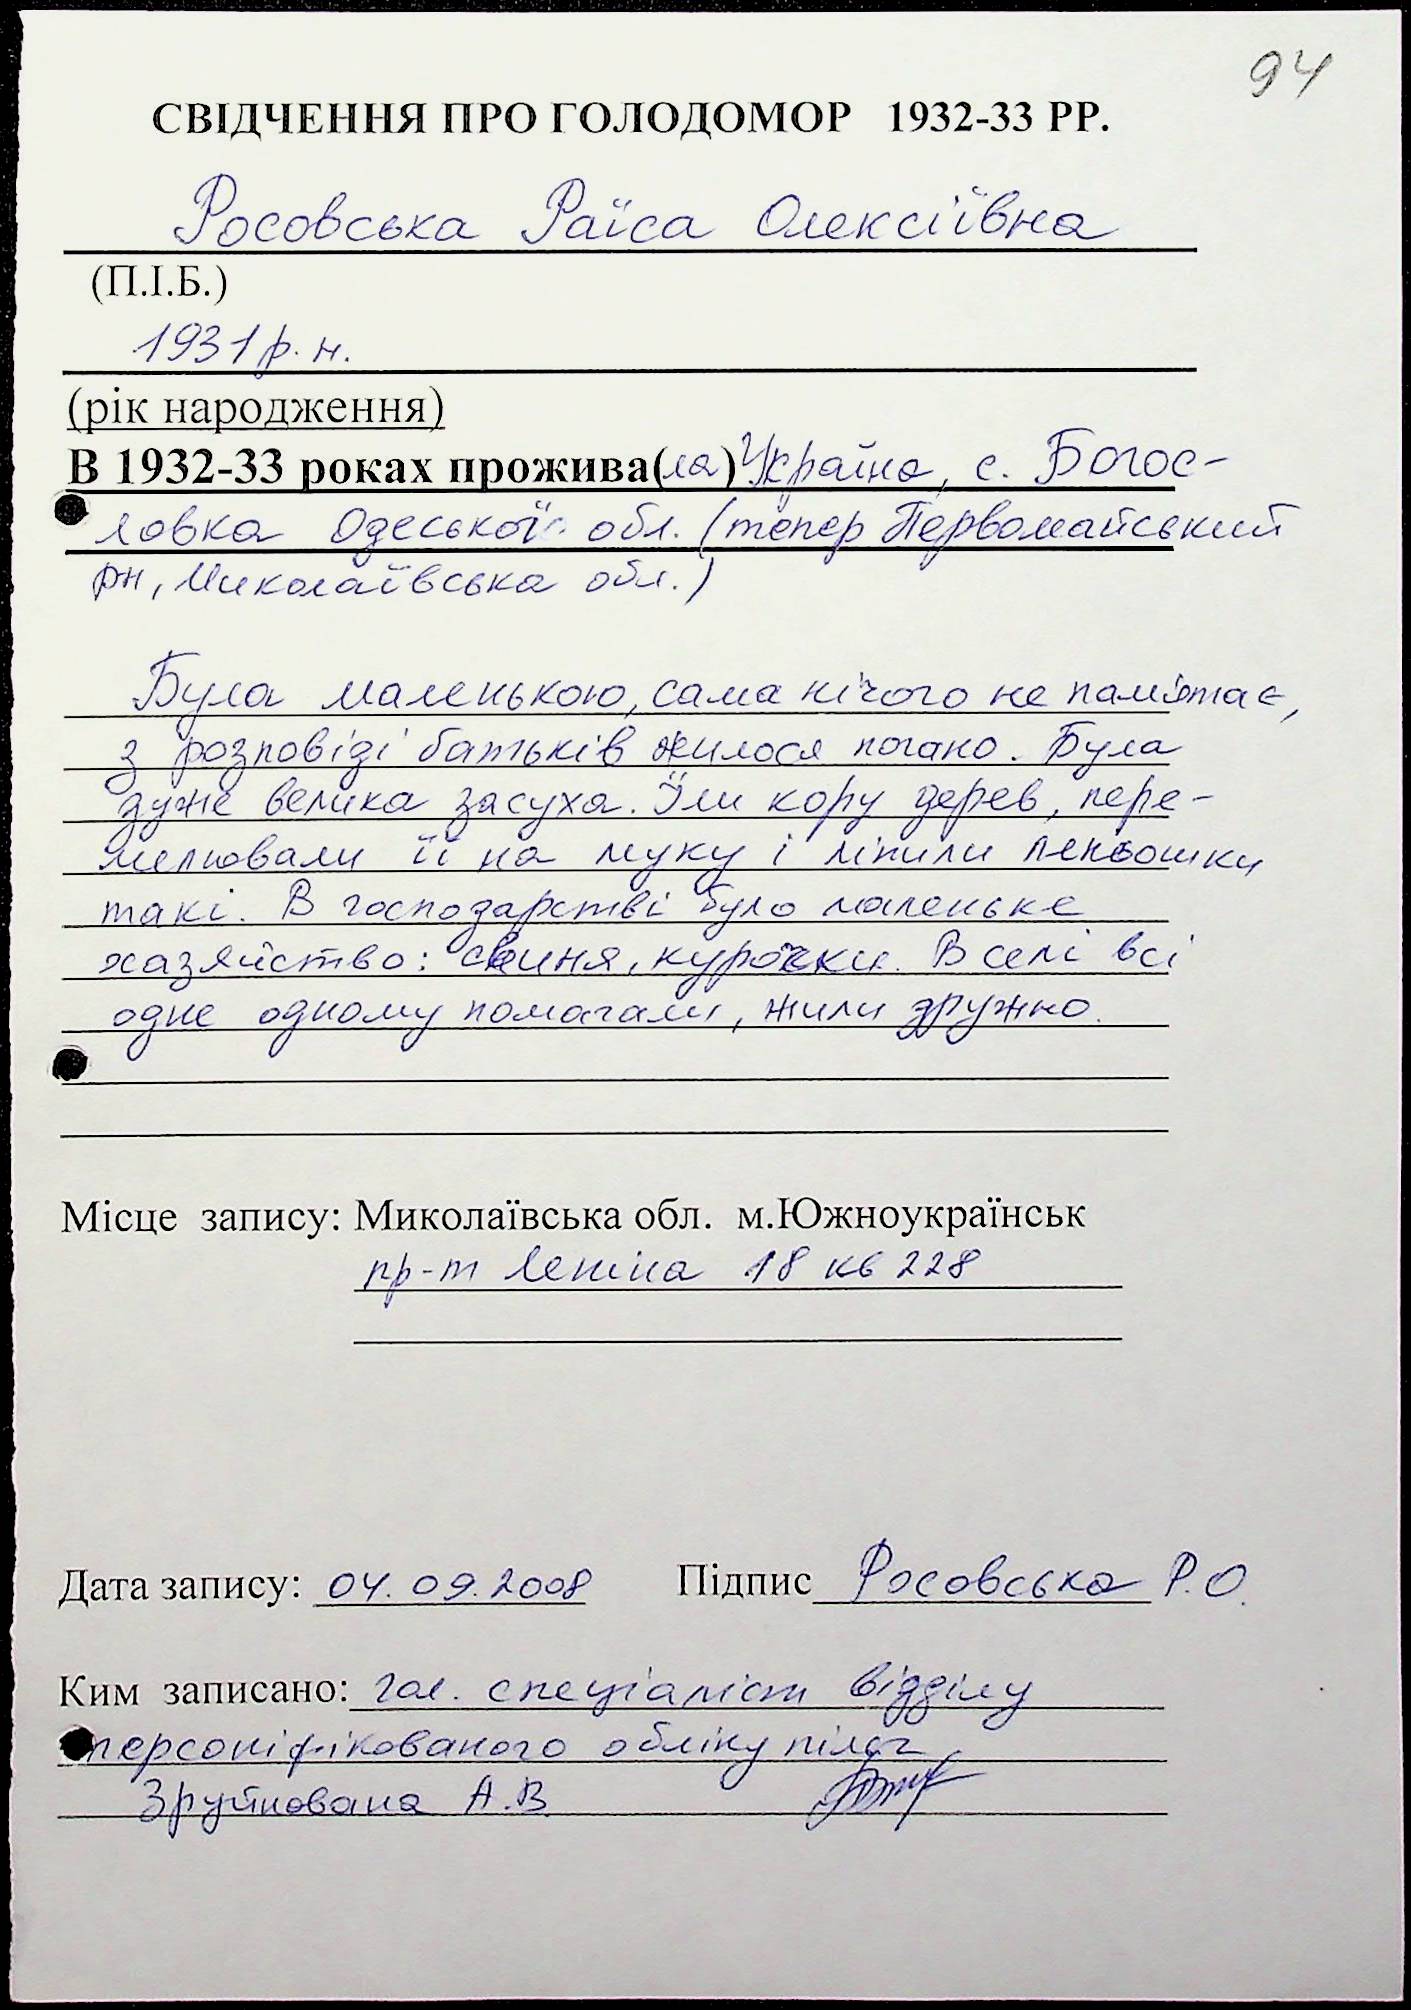 94
СВІДЧЕННЯ ПРО ГОЛОДОМОР 1932-33 РР.
Росовська Раїса Олексіївна
(П.І.Б.)
1931 р.н.
(рік народження)
В 1932-33 роках прожива(ла) Україна, с. Богос-
ловка Одеської обл. (тепер Первомайський
рн, Миколаївська обл.)
Була маленькою, сама нічого не пам'ятає,
з розповіді батьків жилося погано. Була
дуже велика засуха. Їли кору дерев, пере-
мелювали її на муку і ліпили леньошки
такі. В господарстві було маленьке
хазяйство: свиня, курочки. В селі всі
одне одному помагали, жили дружно.
Місце запису: Миколаївська обл. м.Южноукраїнськ
пр-т Леніна 18 кв 228
Дата запису: 04.09.2008 Підпис Росовська Р.О.
Ким записано: гол. спеціаліст відділу
персоніфікованого обліку пільг
Зруйнована А.В.